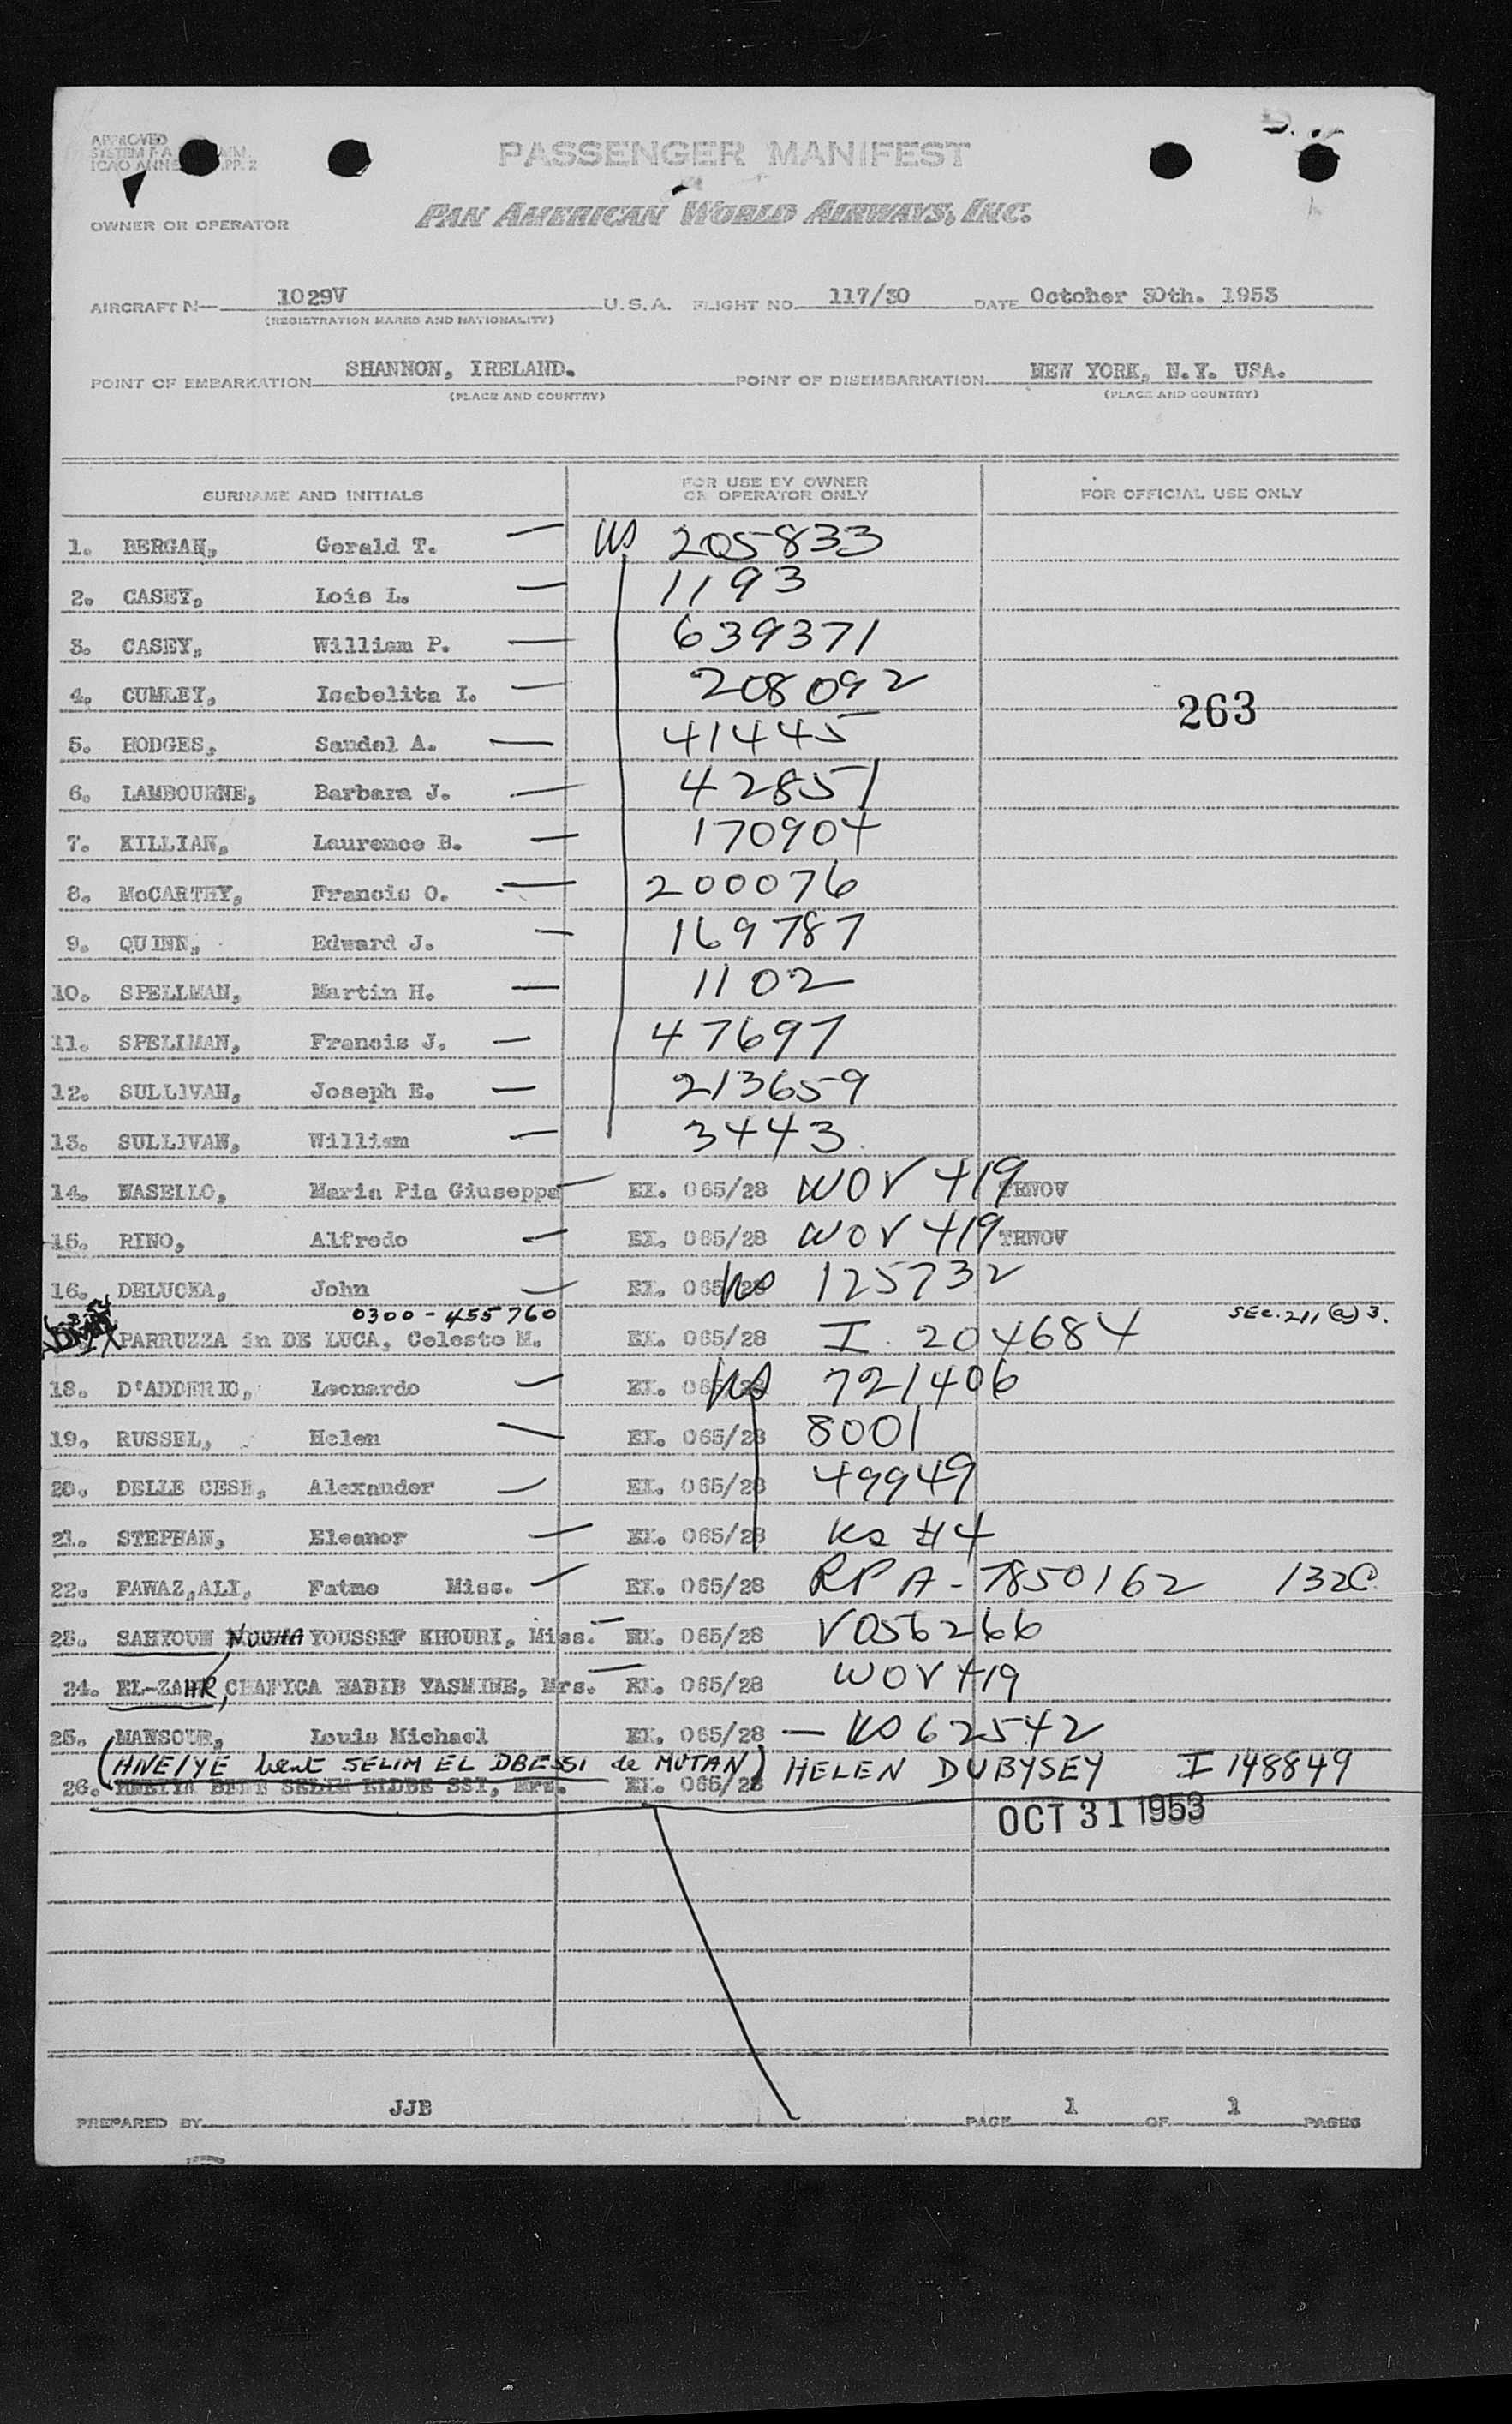 APPROVED
PASSENGER MANIFEST
OWNER OR OPERATOR
PAN AMERICAN WORLD AIRWAYS, INC.
AIRCRAFT N— 1029V U.S.A. FLIGHT NO. 117/30 DATE October 30th. 1953
(REGISTRATION MARKS AND NATIONALITY)
POINT OF EMBARKATION SHANNON, IRELAND. POINT OF DISEMBARKATION NEW YORK, N.Y. USA.
(PLACE AND COUNTRY) (PLACE AND COUNTRY)
SURNAME AND INITIALS FOR USE BY OWNER OR OPERATOR ONLY FOR OFFICIAL USE ONLY
1. BERGAN, Gerald T. — US 205833
2. CASEY, Lois L. — 1193
3. CASEY, William P. — 639371
4. CUMLEY, Isabelita I. — 208092
263
5. HODGES, Sandel A. — 41445
6. LAMBOURNE, Barbara J. — 42851
7. KILLIAN, Laurence B. — 170904
8. McCARTHY, Francis O. — 200076
9. QUINN, Edward J. — 169787
10. SPELLMAN, Martin H. — 1102
11. SPELLMAN, Francis J. — 47697
12. SULLIVAN, Joseph E. — 213659
13. SULLIVAN, William — 3443
14. NASELLO, Maria Pia Giuseppa — EX. 065/28 WOV 419 TRWOV
15. RINO, Alfredo — EX. 065/28 WOV 419 TRWOV
16. DELUCKA, John — EX. 065/28 US 125732
0300-455760 SEC. 211 (a) 3.
PARRUZZA in DE LUCA, Celeste M. EX. 065/28 I 204684
18. D'ADDERIO, Leonardo — EX. 065/28 US 721406
19. RUSSEL, Helen — EX. 065/28 8001
20. DELLE CESE, Alexander — EX. 065/28 49949
21. STEPHAN, Eleanor — EX. 065/28 US #4
22. FAWAZ,ALI, Fatme Miss. — EX. 065/28 RP A-7850162 132C
23. SAHYOUN NOUHA YOUSSEF KHOURI, Miss. — EX. 065/28 V056266
24. EL-ZAHR, CHAFICA HABIB YASMINE, Mrs. — EX. 065/28 WOV 419
25. MANSOUR, Louis Michael EX. 065/28 — US 62542
(HNEIYE bent SELIM EL DBESSI de MUTAN) HELEN DUBYSEY I 148849
26. BITE SELIM ELDBE SSI, Mrs. EX. 065/28
OCT 31 1953
PREPARED BY JJB PAGE 1 OF 1 PAGES